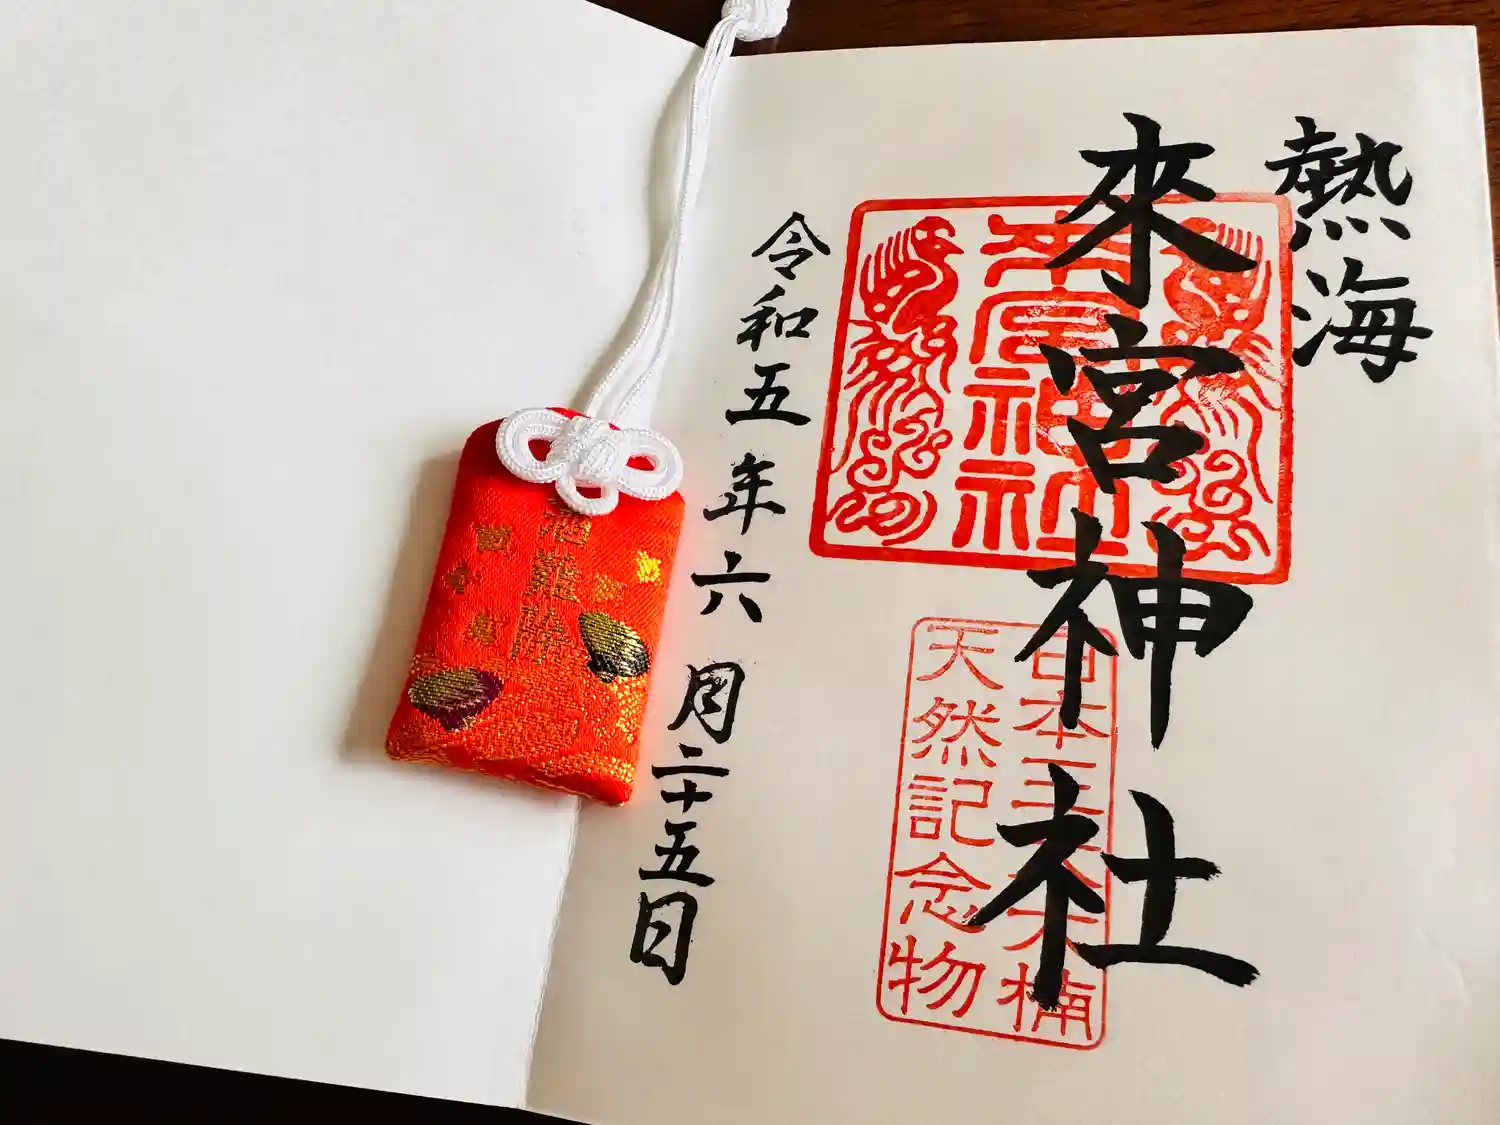 熱海
來宮神社
來宮
神社
日本三大大楠
天然記念物
令和五年六月二十五日